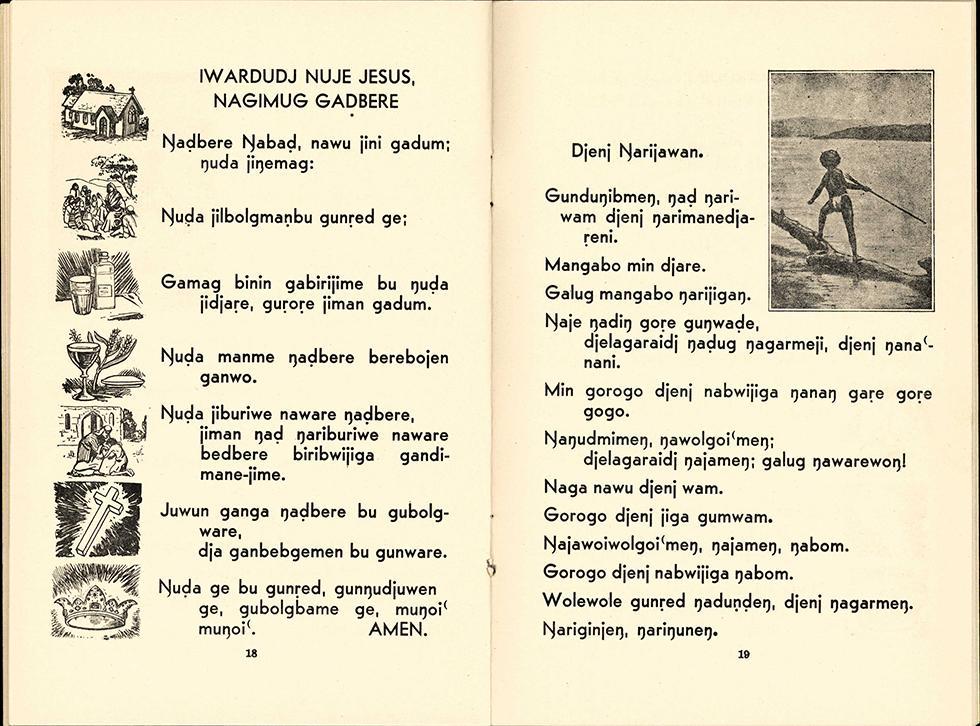 IWARDUDJ NUJE JESUS,
NAGIMUG GADBERE
Ŋaḍbere Ŋabaḍ, nawu jini gadum;
ŋuda jiŋemag:
Ŋuḍa jilbolgmaṇbu gunṛed ge;
Gamag binin gabirijime bu ŋuḍa
jidjaṛe, guṛoṛe jiman gadum.
Ŋuḍa manme ŋaḍbere berebojen
ganwo.
Ŋuḍa jiburiwe naware ŋaḍbere,
jiman ŋaḍ ŋariburiwe naware
bedbere biribwijiga gandi-
mane-jime.
Juwun ganga ŋaḍbere bu gubolg-
ware,
dja ganbebgemen bu gunware.
Ŋuḍa ge bu gunṛed, gunŋudjuwen
ge, gubolgbame ge, muŋoiʿ
muŋoiʿ. AMEN.
18
Djenj Ŋarijawan.
Gunduŋibmeŋ, ŋaḍ ŋari-
wam djenj ŋarimanedja-
ṛeni.
Mangabo min djare.
Galug mangabo ŋarijigaŋ.
Ŋaje ŋadiŋ goṛe guŋwaḍe,
djelagaraidj ŋaḍug ŋagarmeji, djenj ŋanaʿ-
nani.
Min gorogo djenj nabwijiga ŋanaŋ gaṛe goṛe
gogo.
Ŋaŋudmimeŋ, ŋawolgoiʿmeŋ;
djelagaraidj ŋajameŋ; galug ŋawarewoŋ!
Naga nawu djenj wam.
Gorogo djenj jiga gumwam.
Ŋajawoiwolgoiʿmeŋ, ŋajameŋ, ŋabom.
Gorogo djenj nabwijiga ŋabom.
Wolewole gunṛed ŋaduṇdeŋ, djenj ŋagarmeŋ.
Ŋariginjeŋ, ŋariŋuneŋ.
19